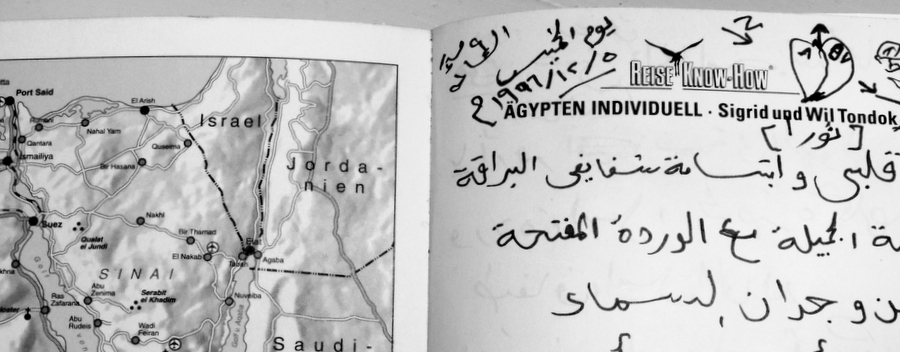 Port Said
El Arish
Israel
Romani
Nahal Yam
Qantara
Quseima
Ismailiya
Bir Hasana
Jorda-
nien
Suez
Nakhl
Qualat
el Jundi
Bir Thamad
Eilat
El Nakab
Taba
Aqaba
SINAI
Abu
Zenima
Serabit
el Khadim
Nuweiba
Ras
Zafarana
Abu
Rudeis
Wadi
Feiran
Saudi-
يوم الخميس
القاهرة
١٩٩٦/١٢/٥ م
REISE KNOW-HOW
ÄGYPTEN INDIVIDUELL · Sigrid und Wil Tondok
[نورا]
قلبي وابتسامة شفايفي البراقة
الجميلة مع الوردة المفتحة
وجدان لسماء